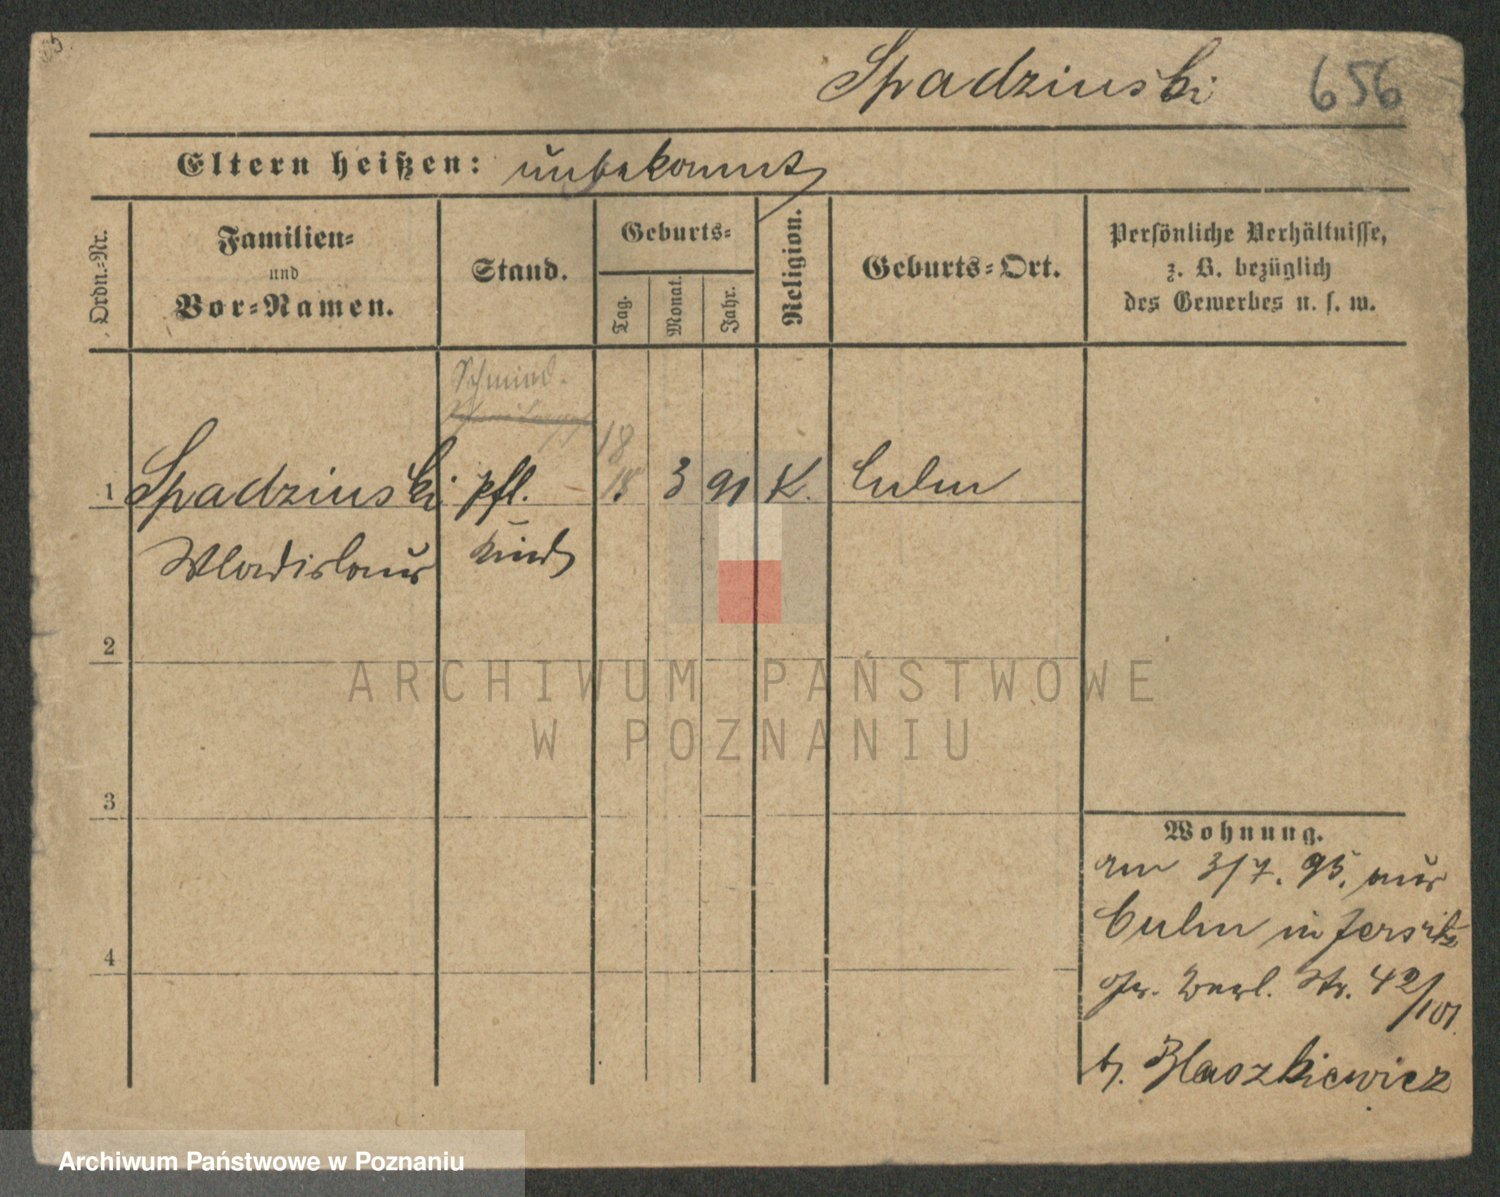 Spadzinski 656
Eltern heißen: unbekannt
Ordn.-Nr.
Familien-
und
Vor-Namen.
Stand.
Geburts-
Tag.
Monat.
Jahr.
Religion.
Geburts-Ort.
Persönliche Verhältnisse,
z. B. bezüglich
des Gewerbes u. s. w.
Schmied.
18
1 Spadzinski pfl. 3 91 K. Culm
Wladislaus Kind
2
ARCHIWUM PAŃSTWOWE
W POZNANIU
3
Wohnung.
am 3/7. 95. aus
Culm in Jersitz
Gr. Berl. Str. 42/101.
b. Blaszkiewicz
4
Archiwum Państwowe w Poznaniu